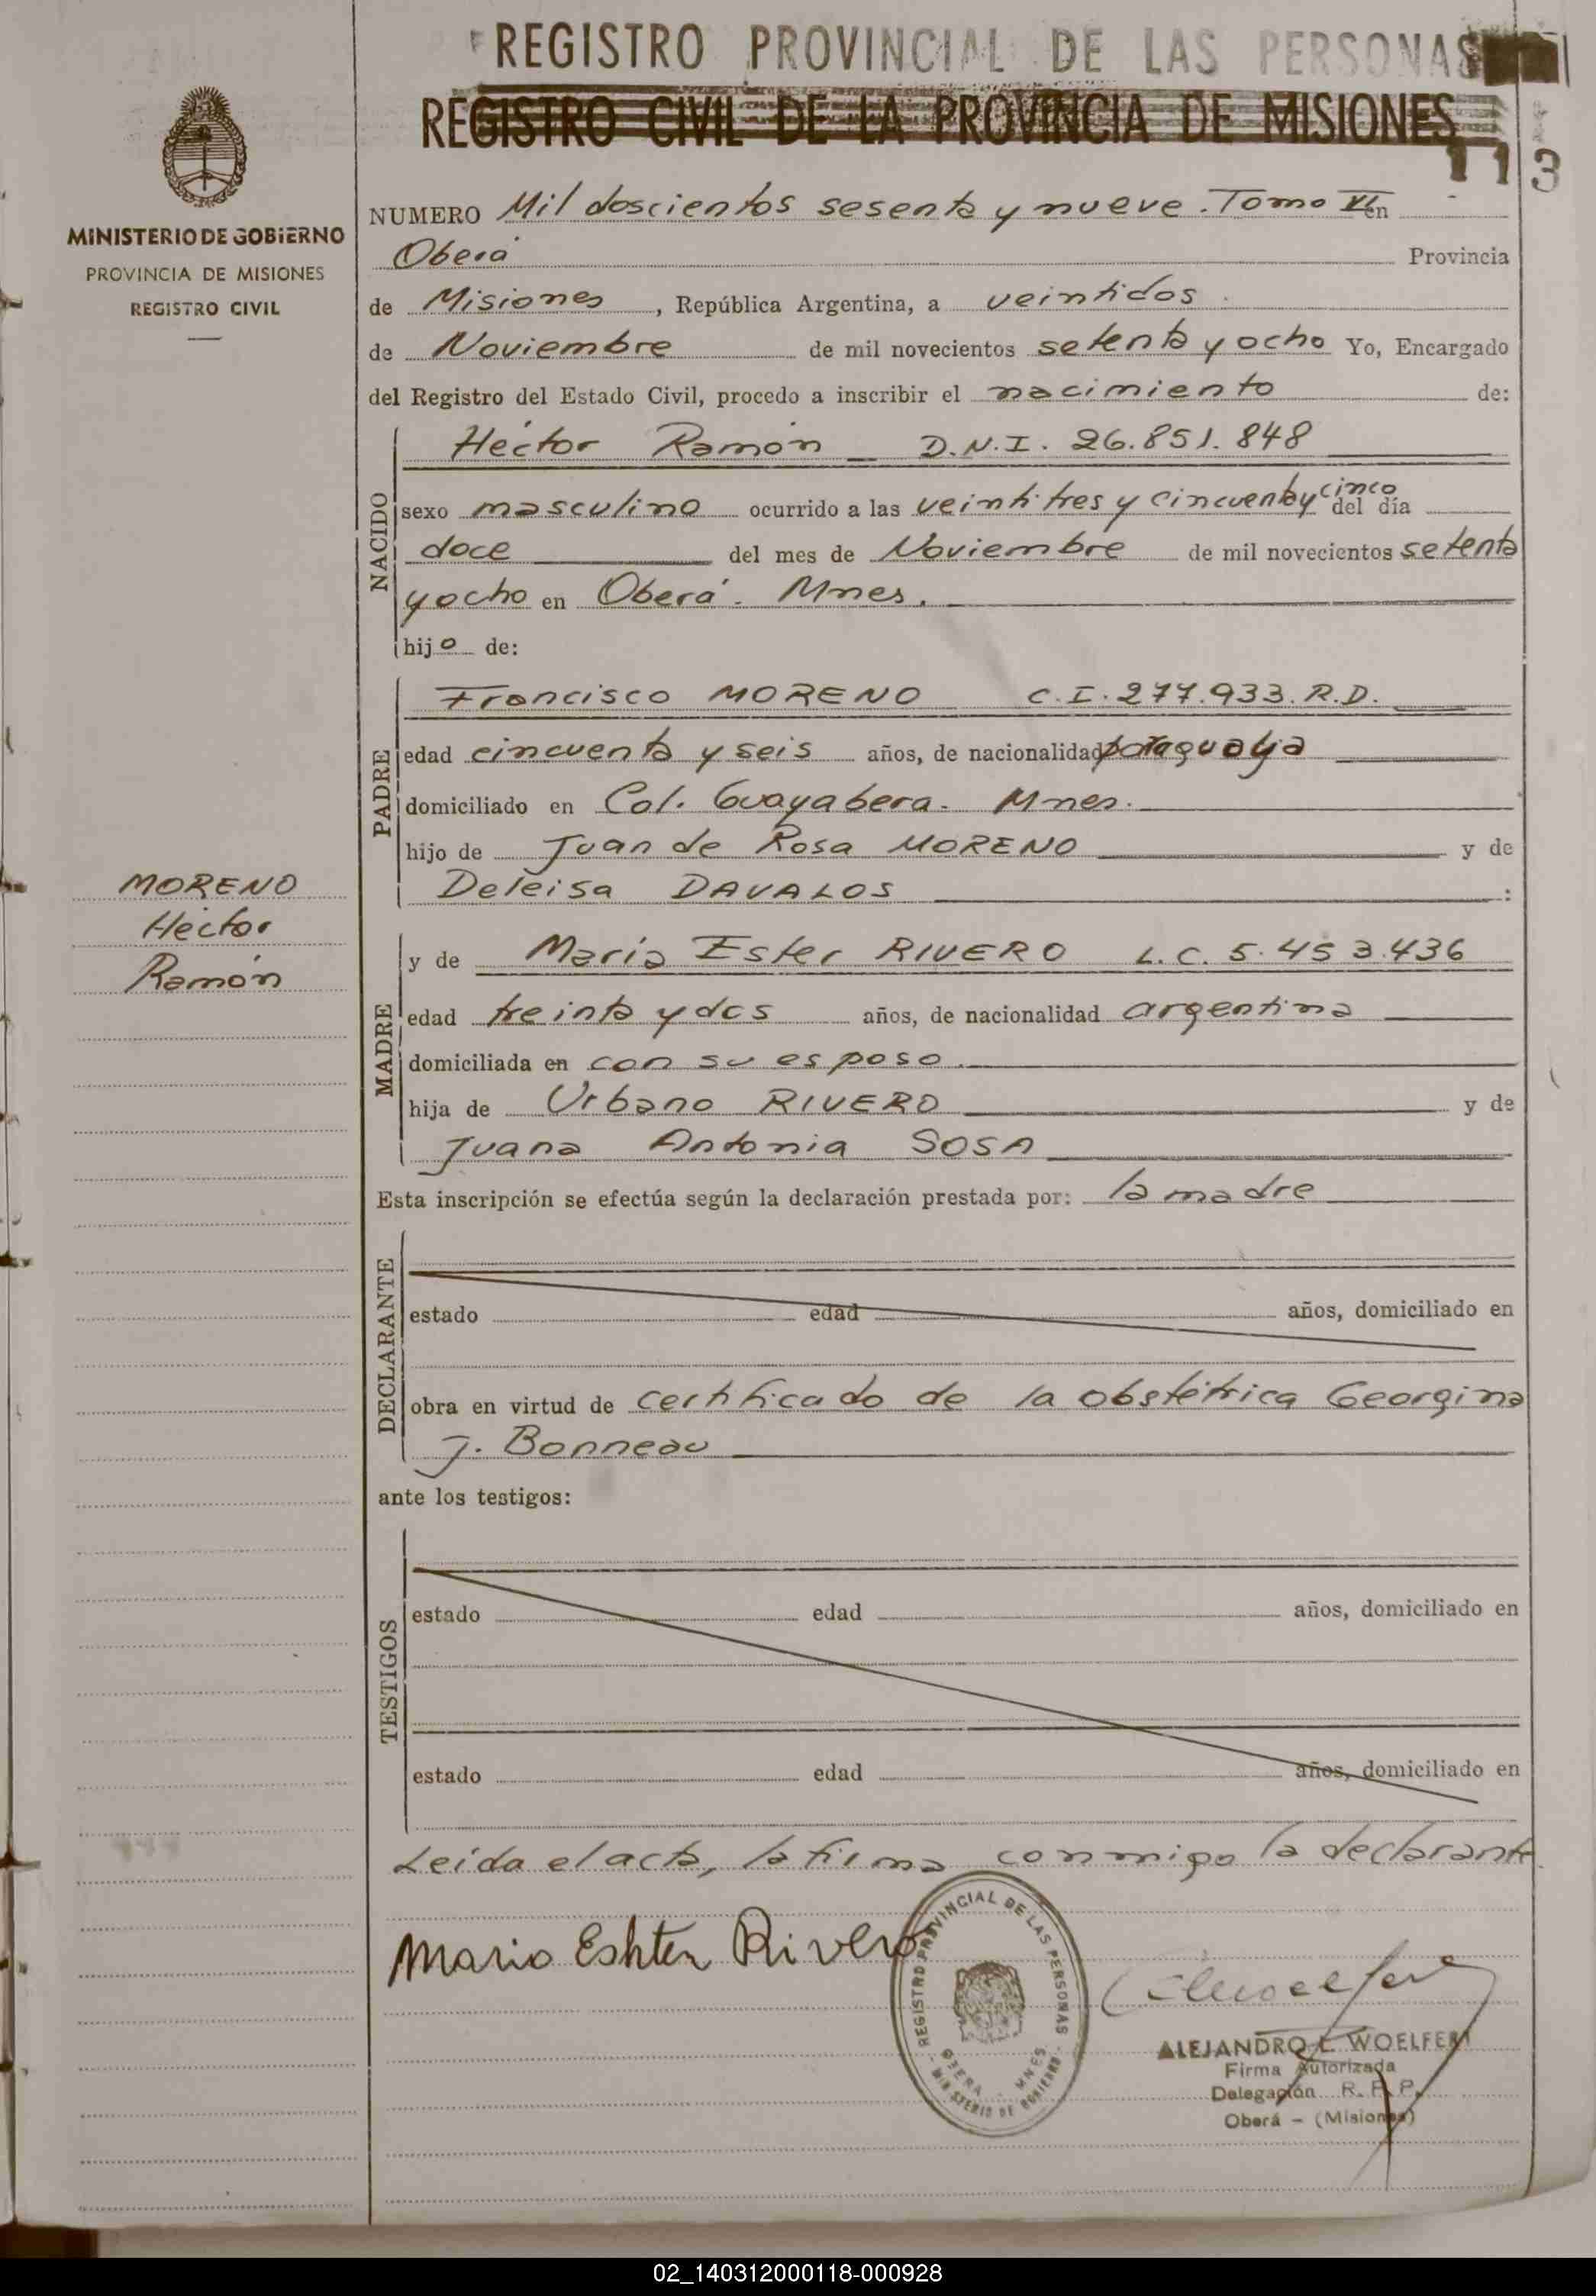 REGISTRO PROVINCIAL DE LAS PERSONAS
REGISTRO CIVIL DE LA PROVINCIA DE MISIONES
113
MINISTERIO DE GOBIERNO
PROVINCIA DE MISIONES
REGISTRO CIVIL
NUMERO Mil doscientos sesenta y nueve. Tomo VI en
Oberá Provincia
de Misiones, República Argentina, a veintidos.
de Noviembre de mil novecientos setenta y ocho Yo, Encargado
del Registro del Estado Civil, procedo a inscribir el nacimiento de:
NACIDO
Héctor Ramón D.N.I. 26.851.848
sexo masculino ocurrido a las veintitres y cincuenta y cinco del día
doce del mes de Noviembre de mil novecientos setenta
y ocho en Oberá. Mnes.
hijo de:
PADRE
Francisco MORENO C.I. 277.933. R.D.
edad cincuenta y seis años, de nacionalidad paraguaya
domiciliado en Col. Guayabera. Mnes.
hijo de Juan de Rosa MORENO y de
Deleisa DAVALOS :
MORENO
Héctor
Ramón
MADRE
y de María Ester RIVERO L.C. 5.453.436
edad treinta y dos años, de nacionalidad argentina
domiciliada en con su esposo.
hija de Urbano RIVERO y de
Juana Antonia SOSA
Esta inscripción se efectúa según la declaración prestada por: la madre
DECLARANTE
estado edad años, domiciliado en
obra en virtud de certificado de la obstétrica Georgina
J. Bonneau
ante los testigos:
TESTIGOS
estado edad años, domiciliado en
estado edad años, domiciliado en
Leída el acta, la firma conmigo la declarante.
Mario Eshter Rivero
REGISTRO PROVINCIAL DE LAS PERSONAS
OBERA - MNES
MINISTERIO DE GOBIERNO
ALEJANDRO L. WOELFERT
Firma Autorizada
Delegación R. P. P.
Oberá - (Misiones)
02_140312000118-000928